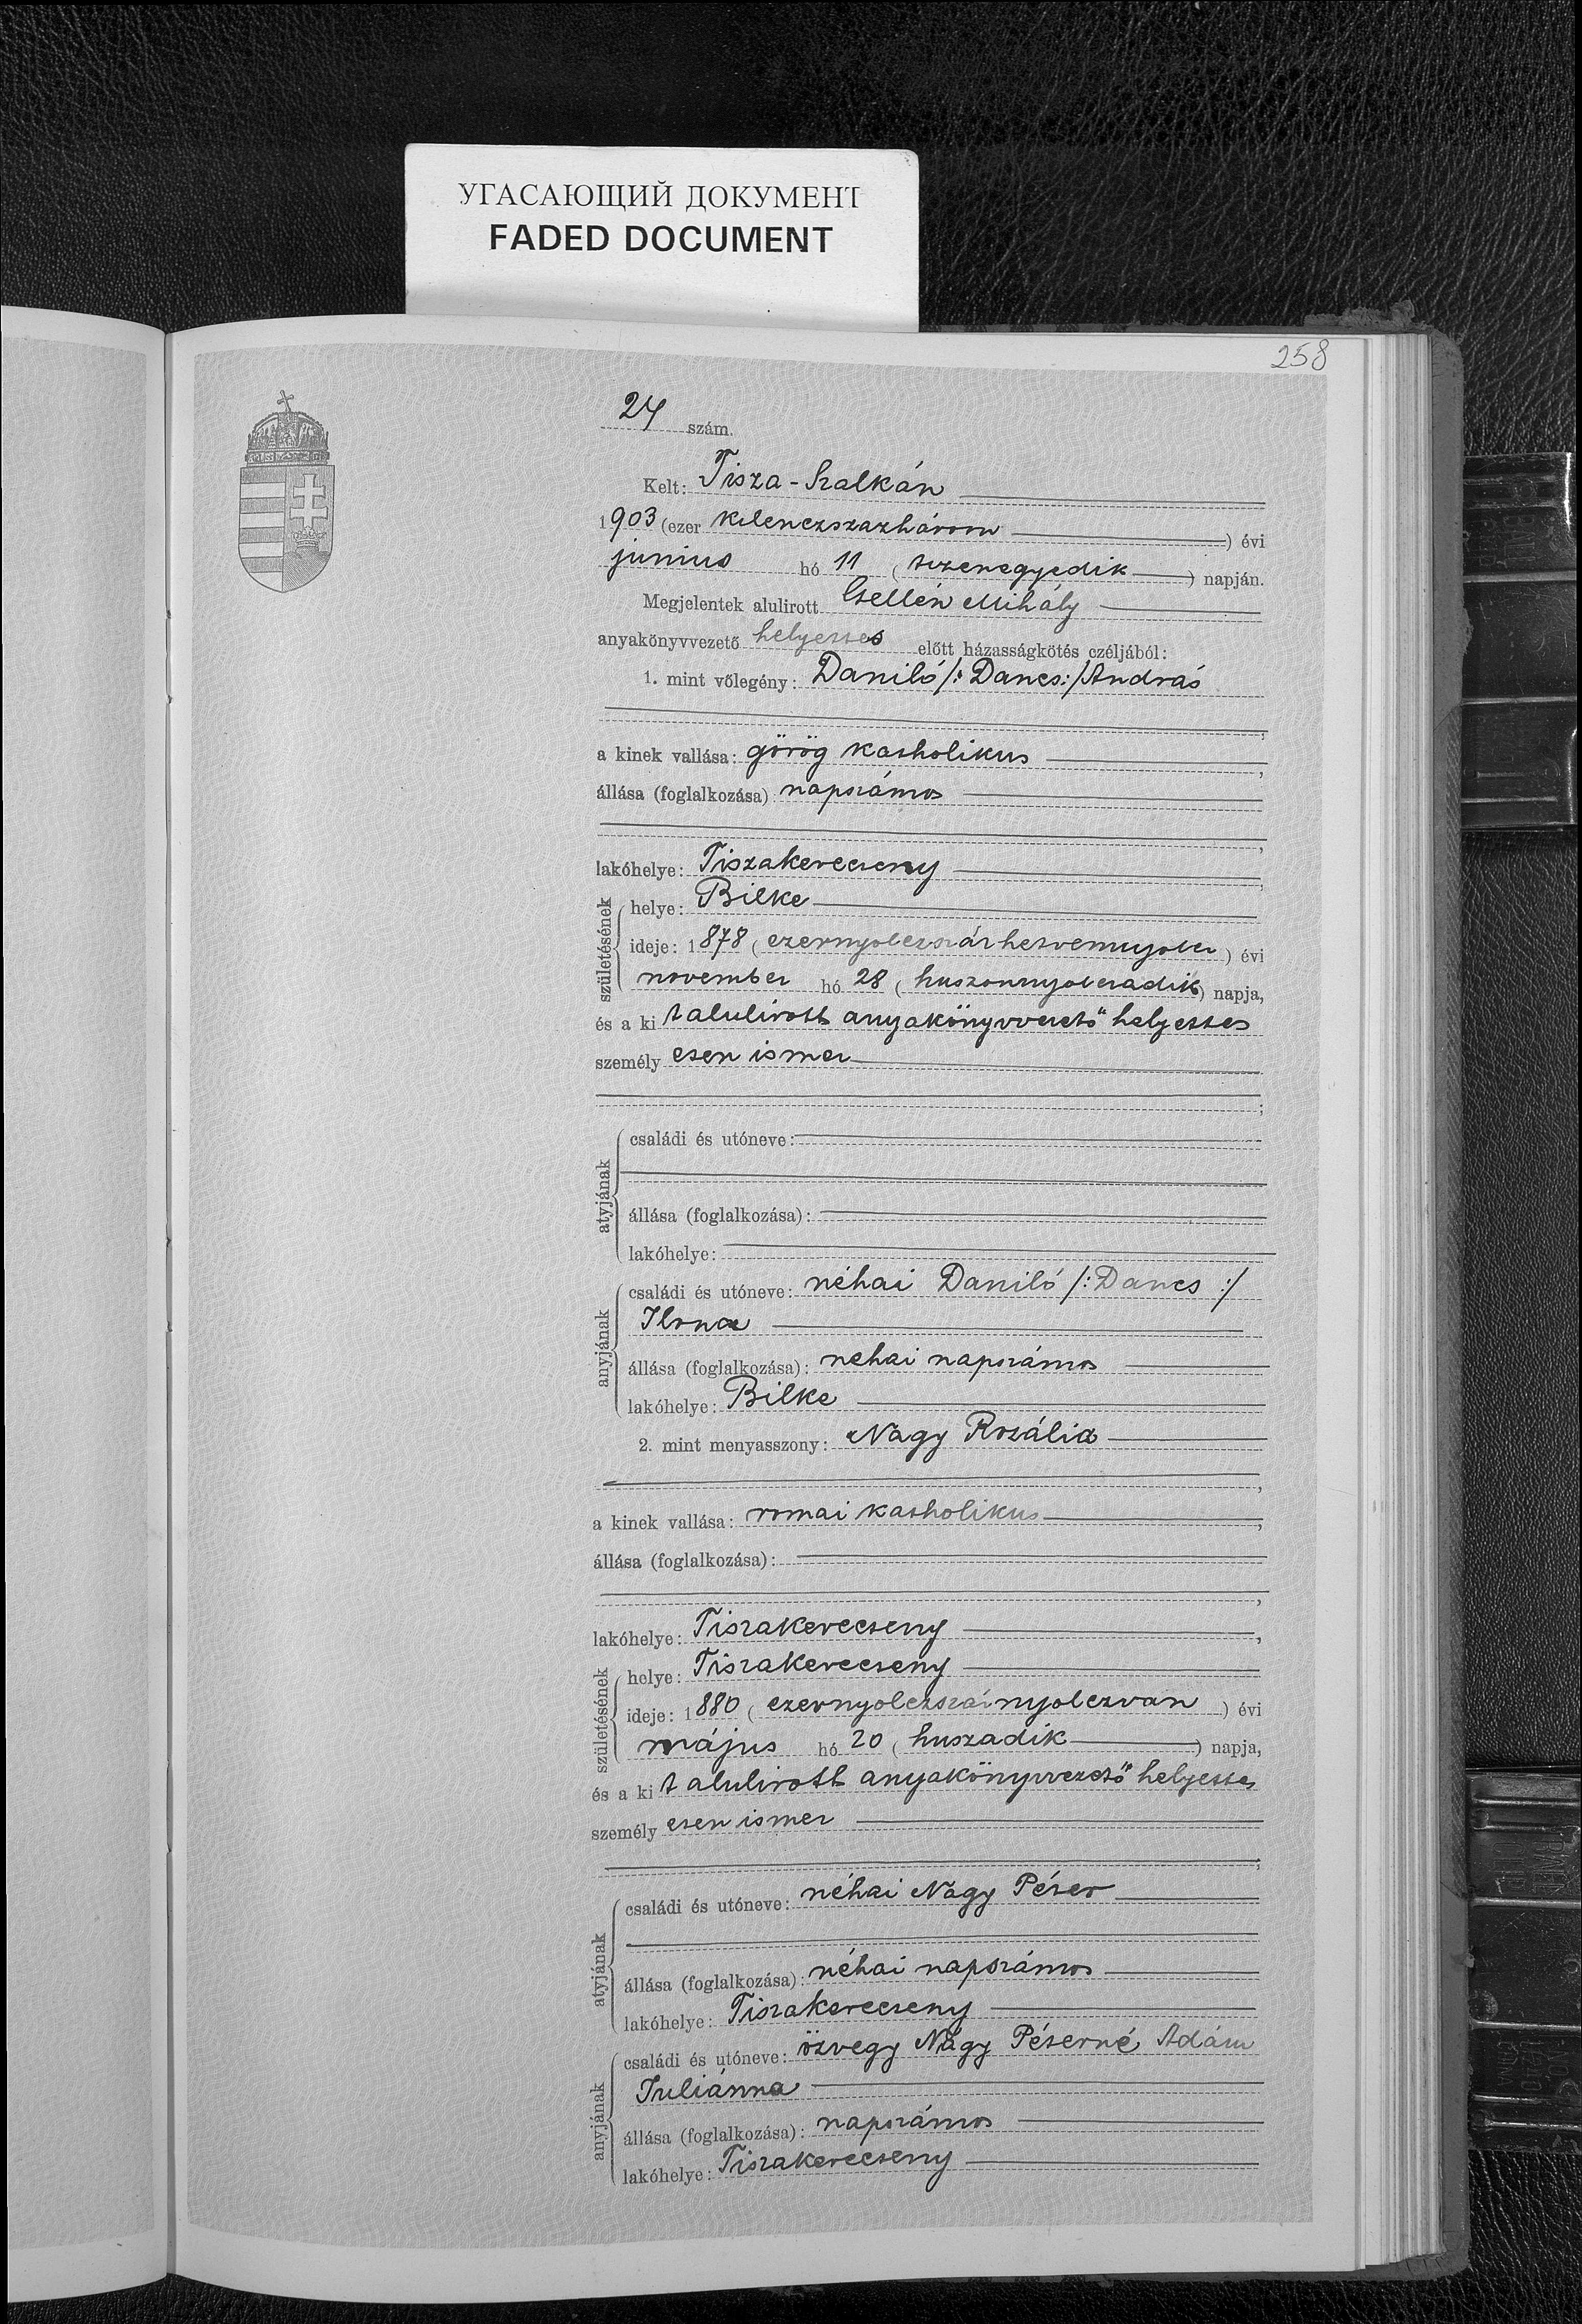 УГАСАЮЩИЙ ДОКУМЕНТ
FADED DOCUMENT
258
24 szám.
Kelt: Tisza-Szalkán
1903 (ezer kilenczszazhárom ) évi
junius hó 11 (tizenegyedik ) napján.
Megjelentek alulirott Csellén Mihály
anyakönyvvezető helyettes előtt házasságkötés czéljából:
1. mint vőlegény: Daniló /: Dancs :/ András
a kinek vallása: görög katholikus
állása (foglalkozása) napszámos
lakóhelye: Tiszakerecseny
születésének
helye: Bilke
ideje: 1878 (ezernyolczszázhetvennyolcz) évi
november hó 28 (huszonnyolczadik) napja,
és a kit alulirott anyakönyvvezető helyettes
személyesen ismer
atyjának
családi és utóneve:
állása (foglalkozása):
lakóhelye:
anyjának
családi és utóneve: néhai Daniló /: Dancs :/
Ilona
állása (foglalkozása): nehai napszámos
lakóhelye: Bilke
2. mint menyasszony: Nagy Rozália
a kinek vallása: romai katholikus
állása (foglalkozása):
lakóhelye: Tiszakerecseny
születésének
helye: Tiszakerecseny
ideje: 1880 (ezernyolczszáznyolczvan ) évi
május hó 20 (huszadik ) napja,
és a kit alulirott anyakönyvvezető helyettes
személyesen ismer
atyjának
családi és utóneve: néhai Nagy Péter
állása (foglalkozása): néhai napszámos
lakóhelye: Tiszakerecseny
anyjának
családi és utóneve: özvegy Nagy Péterné Adám
Juliánna
állása (foglalkozása): napszámos
lakóhelye: Tiszakerecseny